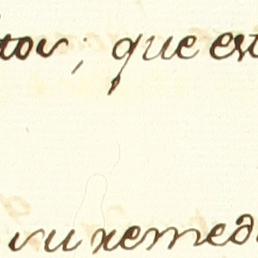 tor; que est
su remed